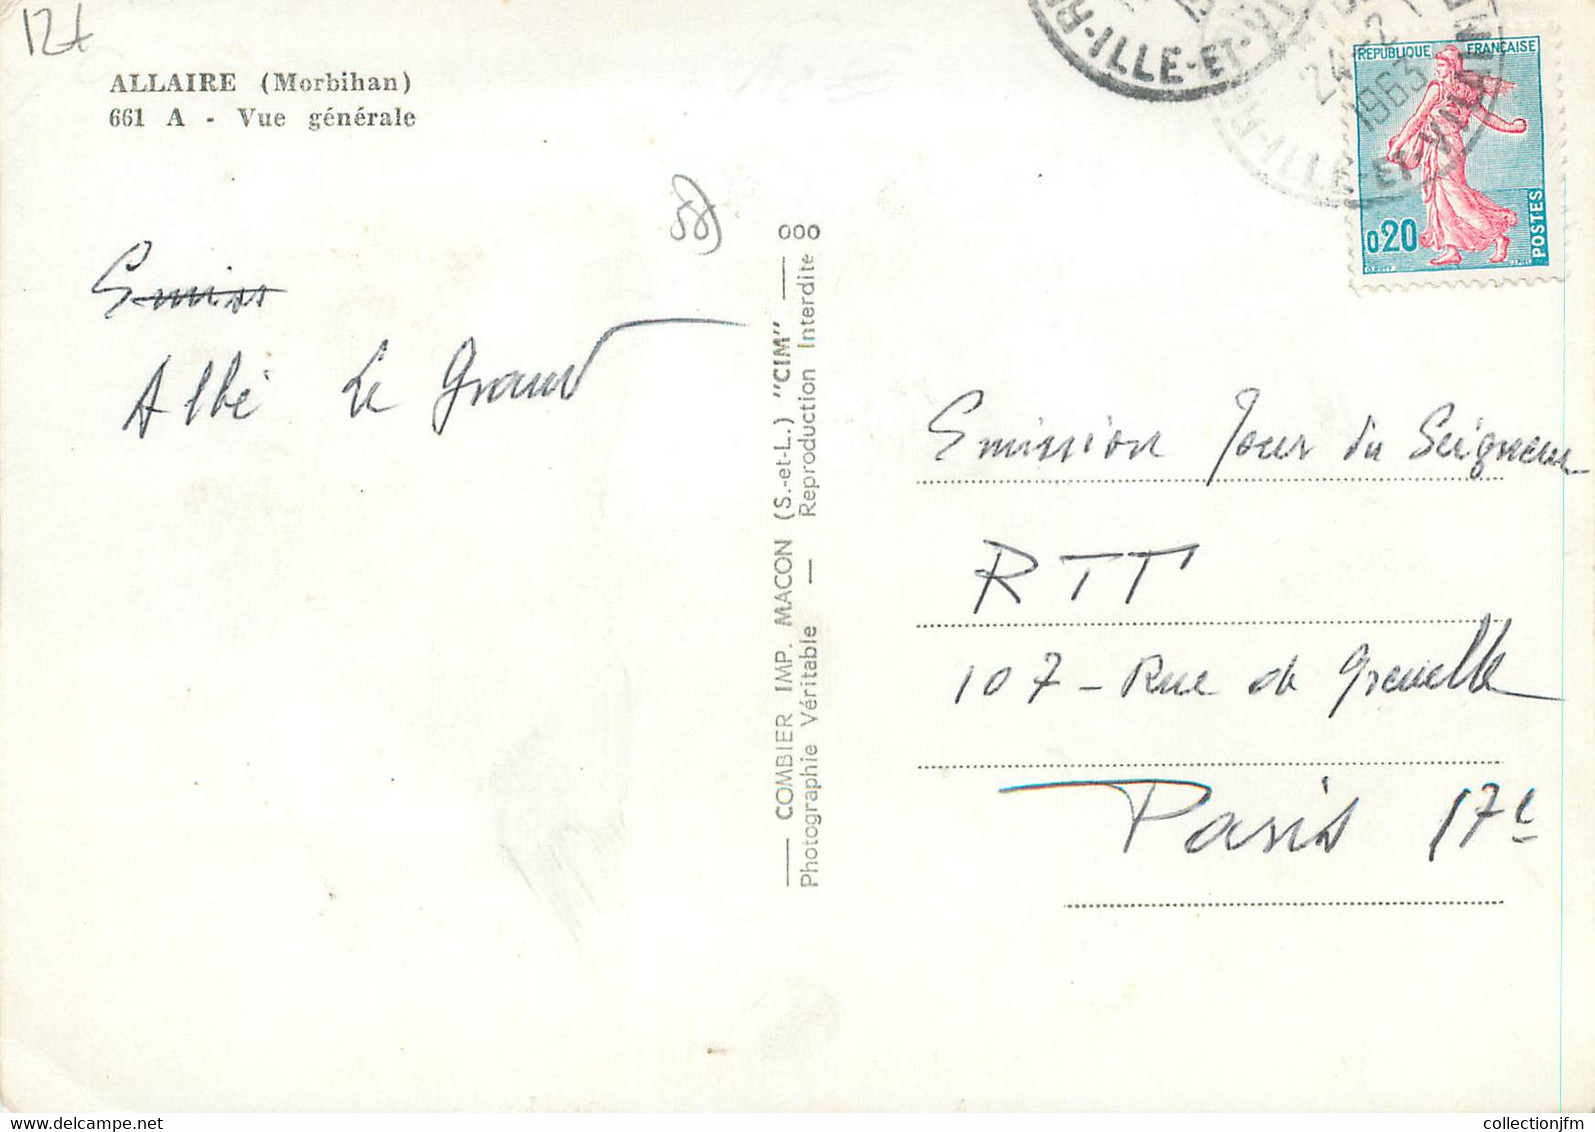 12t
ALLAIRE (Morbihan)
661 A - Vue générale
Emiss
Albé Le Grand
COMBIER IMP. MACON (S.-et-L.) "CIM"
Photographie Véritable — Reproduction Interdite
ILLE-ET-VI
24-2
1963
ILLE-ET-VILAINE
REPUBLIQUE FRANÇAISE
0,20
POSTES
Emission Jour du Seigneur
RTT
107 - Rue de Grenelle
Paris 17e
www.delcampe.net
collectionjfm